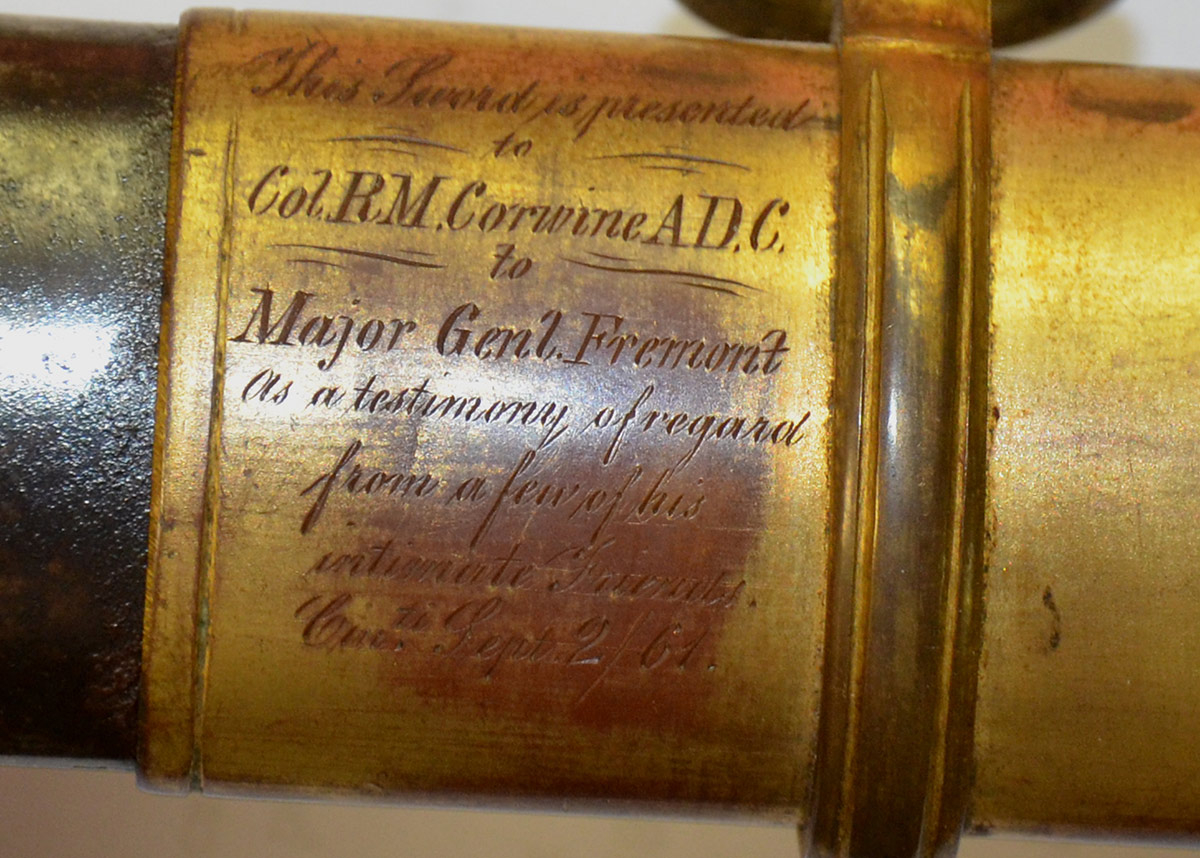 This Sword is presented
to
Col. R.M. Corwine A.D.C.
to
Major Genl. Fremont
as a testimony of regard
from a few of his
intimate Friends.
Cin.ti Sept. 2/61.